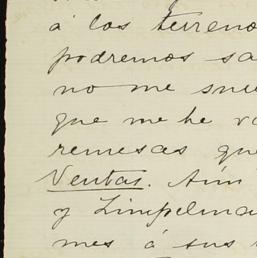 á los terreno
podremos sa
no me
que me he va
remesas que
Ventas. Aún
y Limpelma
mes á sus